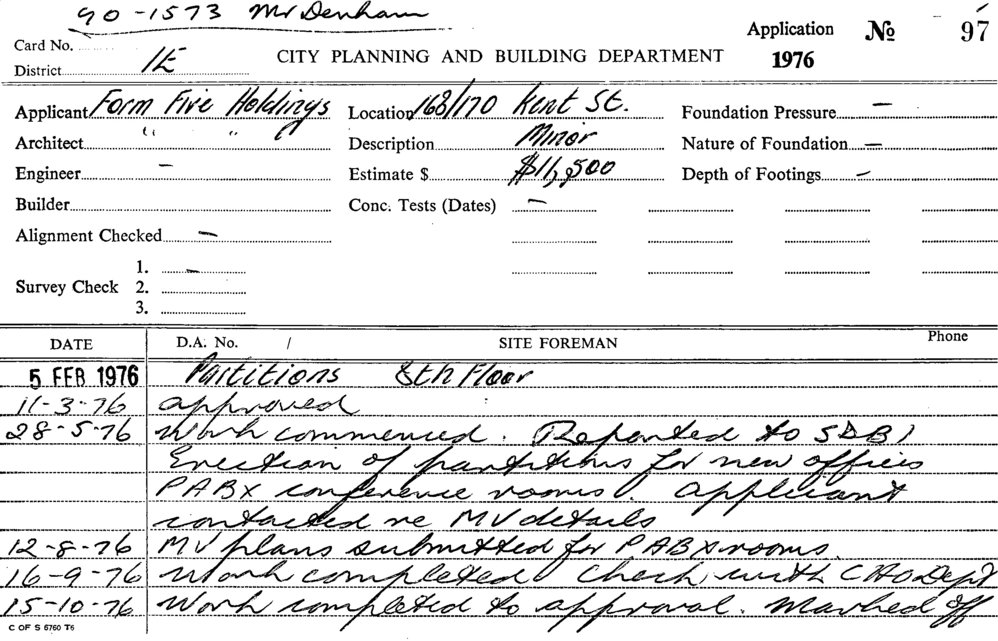 90-1573 Mr Denham
Card No.
Application No 97
District 1E
CITY PLANNING AND BUILDING DEPARTMENT
1976
Applicant Form Five Holdings
Location 168/170 Kent St.
Foundation Pressure —
Architect " " "
Description Minor
Nature of Foundation —
Engineer —
Estimate $ $11,500
Depth of Footings —
Builder
Conc. Tests (Dates) —
Alignment Checked —
Survey Check 1. —
2.
3.
DATE D.A. No. / SITE FOREMAN Phone
5 FEB 1976 Partitions 8th Floor
11-3-76 approved
28-5-76 Work commenced. Reported to SDBI
Erection of partitions for new offices
PABX conference rooms. Applicant
contacted re MV details
12-8-76 MV plans submitted for PABX rooms.
16-9-76 Work completed Check with CHO Dept
15-10-76 Work completed to approval. Marked off
C OF S 6760 T6